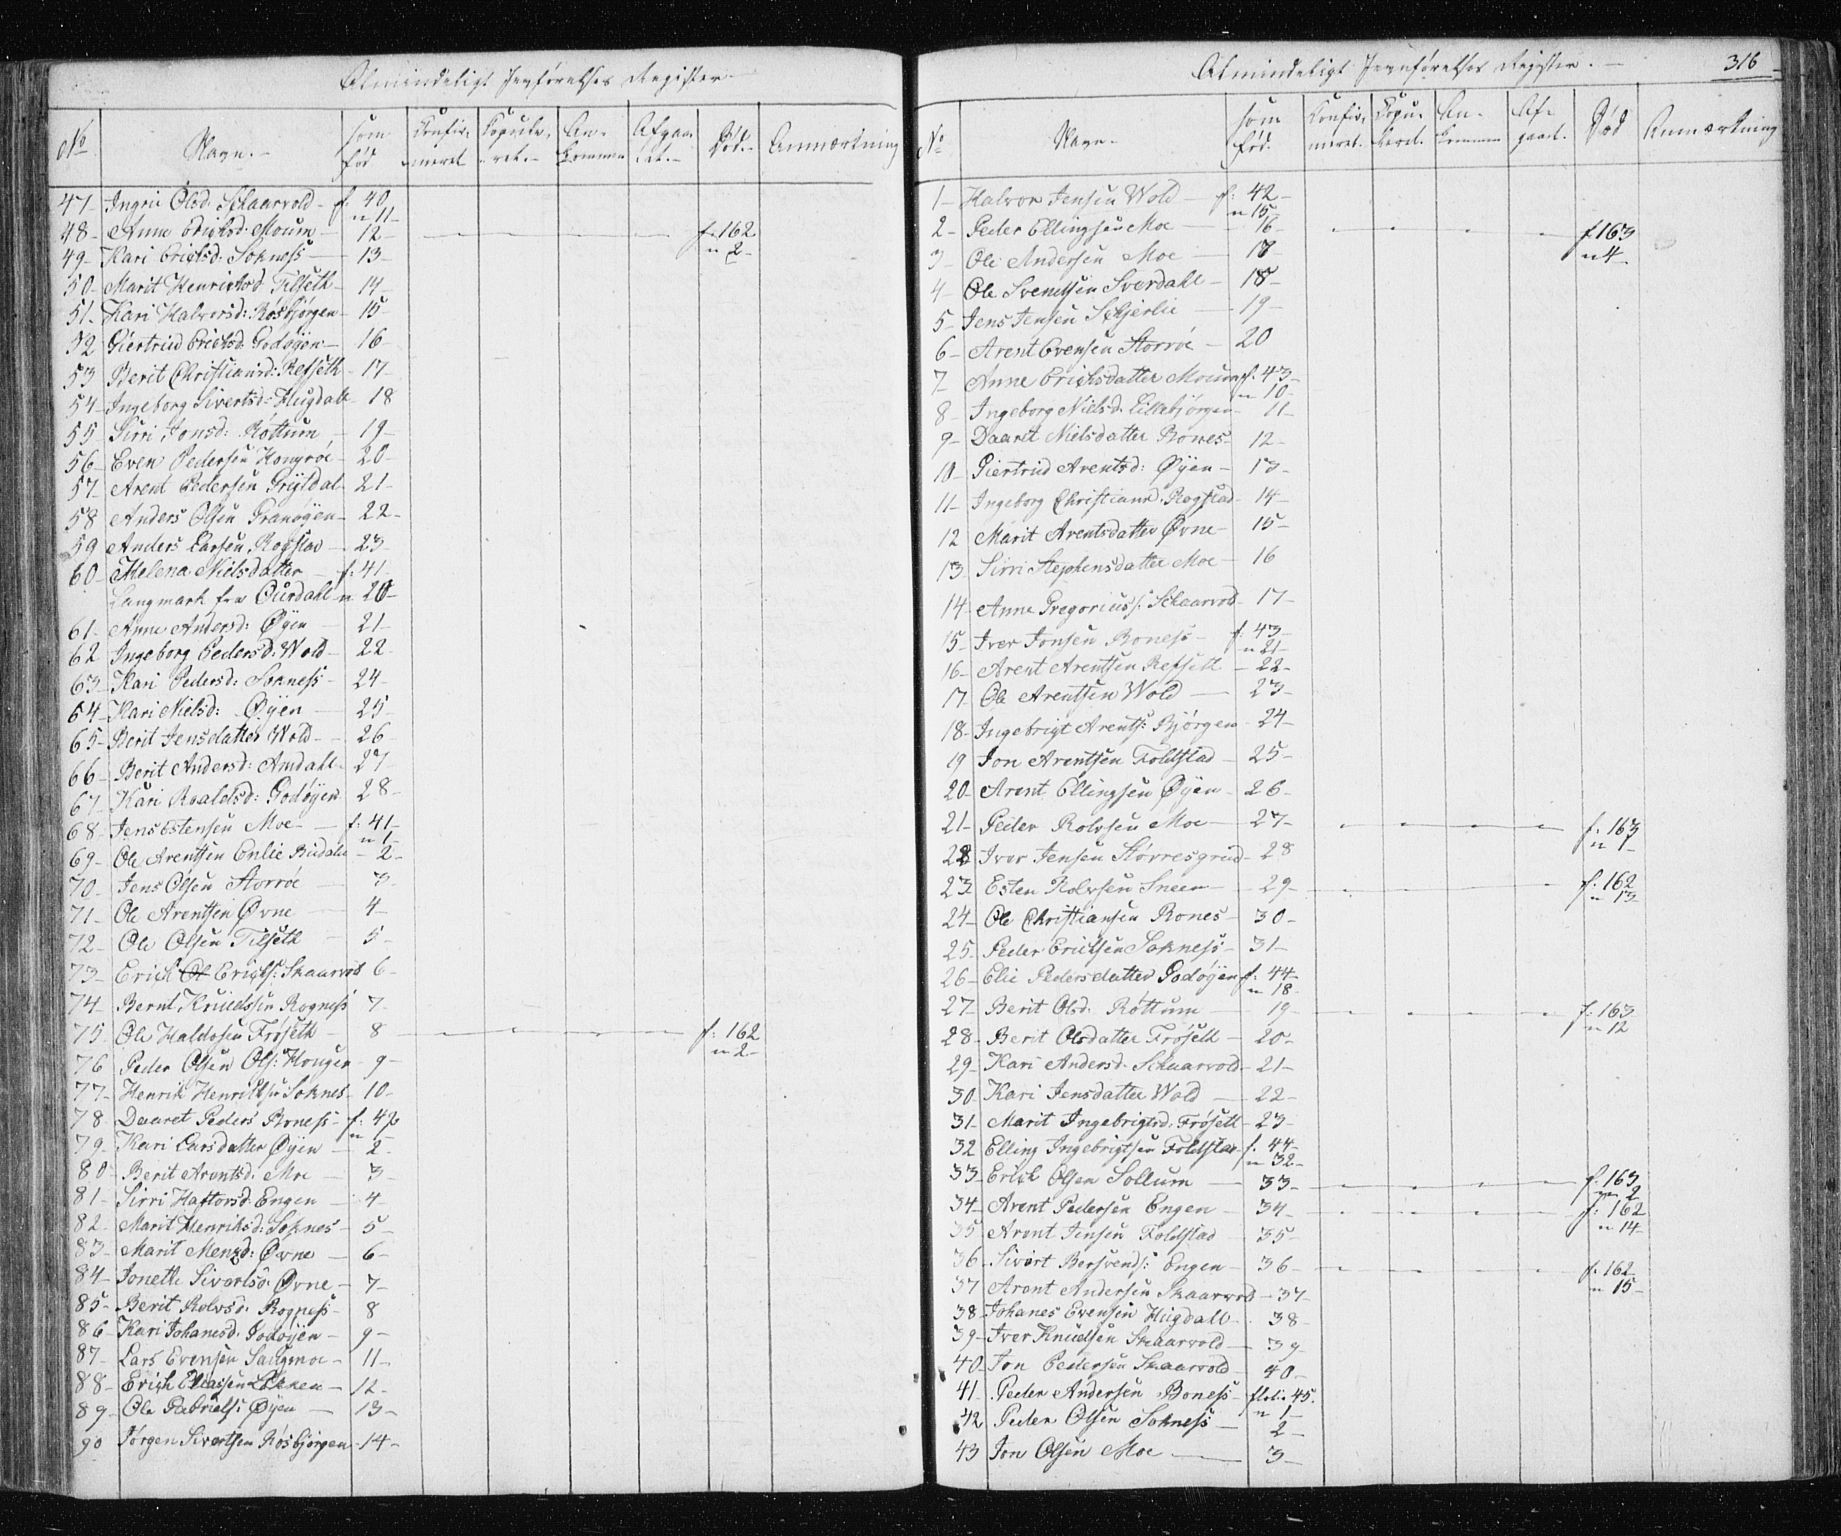 Almindeligt Jevnførelses Register.
No Navn. som fød Confirmeret Copuleret. Ankommen Afgaaet. Død. Anmærkning
47 Ingri Olsd. Schaarvold f. 40 n 11
48 Anne Erichsd. Mouum 12 f. 162 n 2
49 Kari Erichsd. Sokness 13
50 Marit Henrichsd Tilseth 14
51 Kari Halvorsd: Rosbjørgen 15
52 Giertrud Erichsd. Godøyen 16
53 Berit Christiansd: Refseth 17
54 Ingeborg Sivertsd: Hugdahl 18
55 Sirri Jonsd: Rottum 19
56 Even Pedersen Kongroe 20
57 Arent Pedersen Gryldal 21
58 Anders Olsen Granøyen 22
59 Anders Larsen Rogstad 23
60 Melena Nielsdatter f. 41
Langmark fra Ourdahl n 20
61 Anne Andersd: Øyen 21
62 Ingeborg Pedersd: Wold 22
63 Kari Pedersd: Sokness 24
64 Kari Nielsd: Øyen 25
65 Berit Jensdatter Wold 26
66 Berit Andersd: Amdahl 27
67 Kari Roaldsd: Godøyen 28
68 Jens Estensen Moe f. 41 n 1
69 Ole Arentsen Enlie Budahl 2
70 Jens Olsen Storroe 3
71 Ole Arentsen Øvne 4
72 Ole Olsen Tilseth 5
73 Erich Ol Erichs: Skaarvold 6
74 Bernt Knudssen Rogness 7
75 Ole Haldosen Frøseth 8 f: 162 n 2
76 Peder Olsen Ols: Hougen 9
77 Henrik Henriksen Soknes 10
78 Daaret Peders Boness f: 42 n 1
79 Kari Larsdatter Øyen 2
80 Berit Arentsd. Moe 3
81 Sirri Haftorsd. Engen 4
82 Marit Henriksd: Soknes 5
83 Marit Mensd: Øvne 6
84 Joneth Sivertsd. Øvne 7
85 Berit Rolvsd. Rogness 8
86 Kari Johanesd. Godøyen 9
87 Lars Evensen Saugmoe 11
88 Erich Eliassen Løkken 12
89 Ole Gabriels: Øyen 13
90 Jørgen Sivertsen Rosbjørgen 14
Almindeligt Jevnførelses Register. 316
No Navn. som fød. Confirmeret. Copuleret. Ankommen Afgaaet. Død Anmærkning
1 Halvor Jensen Wold f: 42 n 15
2 Peder Ellingsen Moe 16 f 163 n 4
3 Ole Andersen Moe 17
4 Ole Svendsen Sverdahl 18
5 Jens Jensen Schjerlie 19
6 Arent Evensen Storroe 20
7 Anne Erichsdatter Mouum f. 43 n 10
8 Ingeborg Nielsd. Lillebjørgen 11
9 Daaret Nielsdatter Bones 12
10 Giertrud Arentsd: Øyen 13
11 Ingeborg Christiansd. Rogstad 14
12 Marit Arentsdatter Øvne 15
13 Sirri Stephensdatter Moe 16
14 Anne Gregorius: Schaarvold 17
15 Iver Jonsen Boness f. 43 n 21
16 Arent Arentsen Refseth 22
17 Ole Arentsen Wold 23
18 Ingebrigt Arents: Bjørgen 24
19 Jon Arentsen Foldstad 25
20 Arent Ellingsen Øyen 26
21 Peder Rolvsen Moe 27 f. 163 n 1
22 Iver Jensen Storresgrud 28
23 Esten Rolvsen Sneen 29 f. 162 n 13
24 Ole Christiansen Bones 30
25 Peder Erichsen Sokness 31
26 Elie Pedersdatter Godøyen f. 44 n 18
27 Berit Olsd. Røttum 19 f. 163 n 12
28 Berit Olsdatter Frøseth 20
29 Kari Andersd. Schaarvold 21
30 Kari Jensdatter Wold 22
31 Marit Ingebrigtsd. Frøseth 23
32 Elling Ingebrigtsen Foldstad f. 44 n 32
33 Erich Olsen Sollum 33 f. 163 n 2
34 Arent Pedersen Engen 34 f. 162 n 14
35 Arent Jensen Foldstad 35
36 Sivert Bersvends: Engen 36 f. 162 n 15
37 Arent Andersen Skaarvold 37
38 Johanes Evensen Hugdahl 38
39 Iver Knudsen Skaarvold 39
40 Jon Pedersen Skaarvold 40
41 Peder Andersen Boness folie 45. n 1
42 Peder Olsen Sokness 2
43 Jon Olsen Moe 3